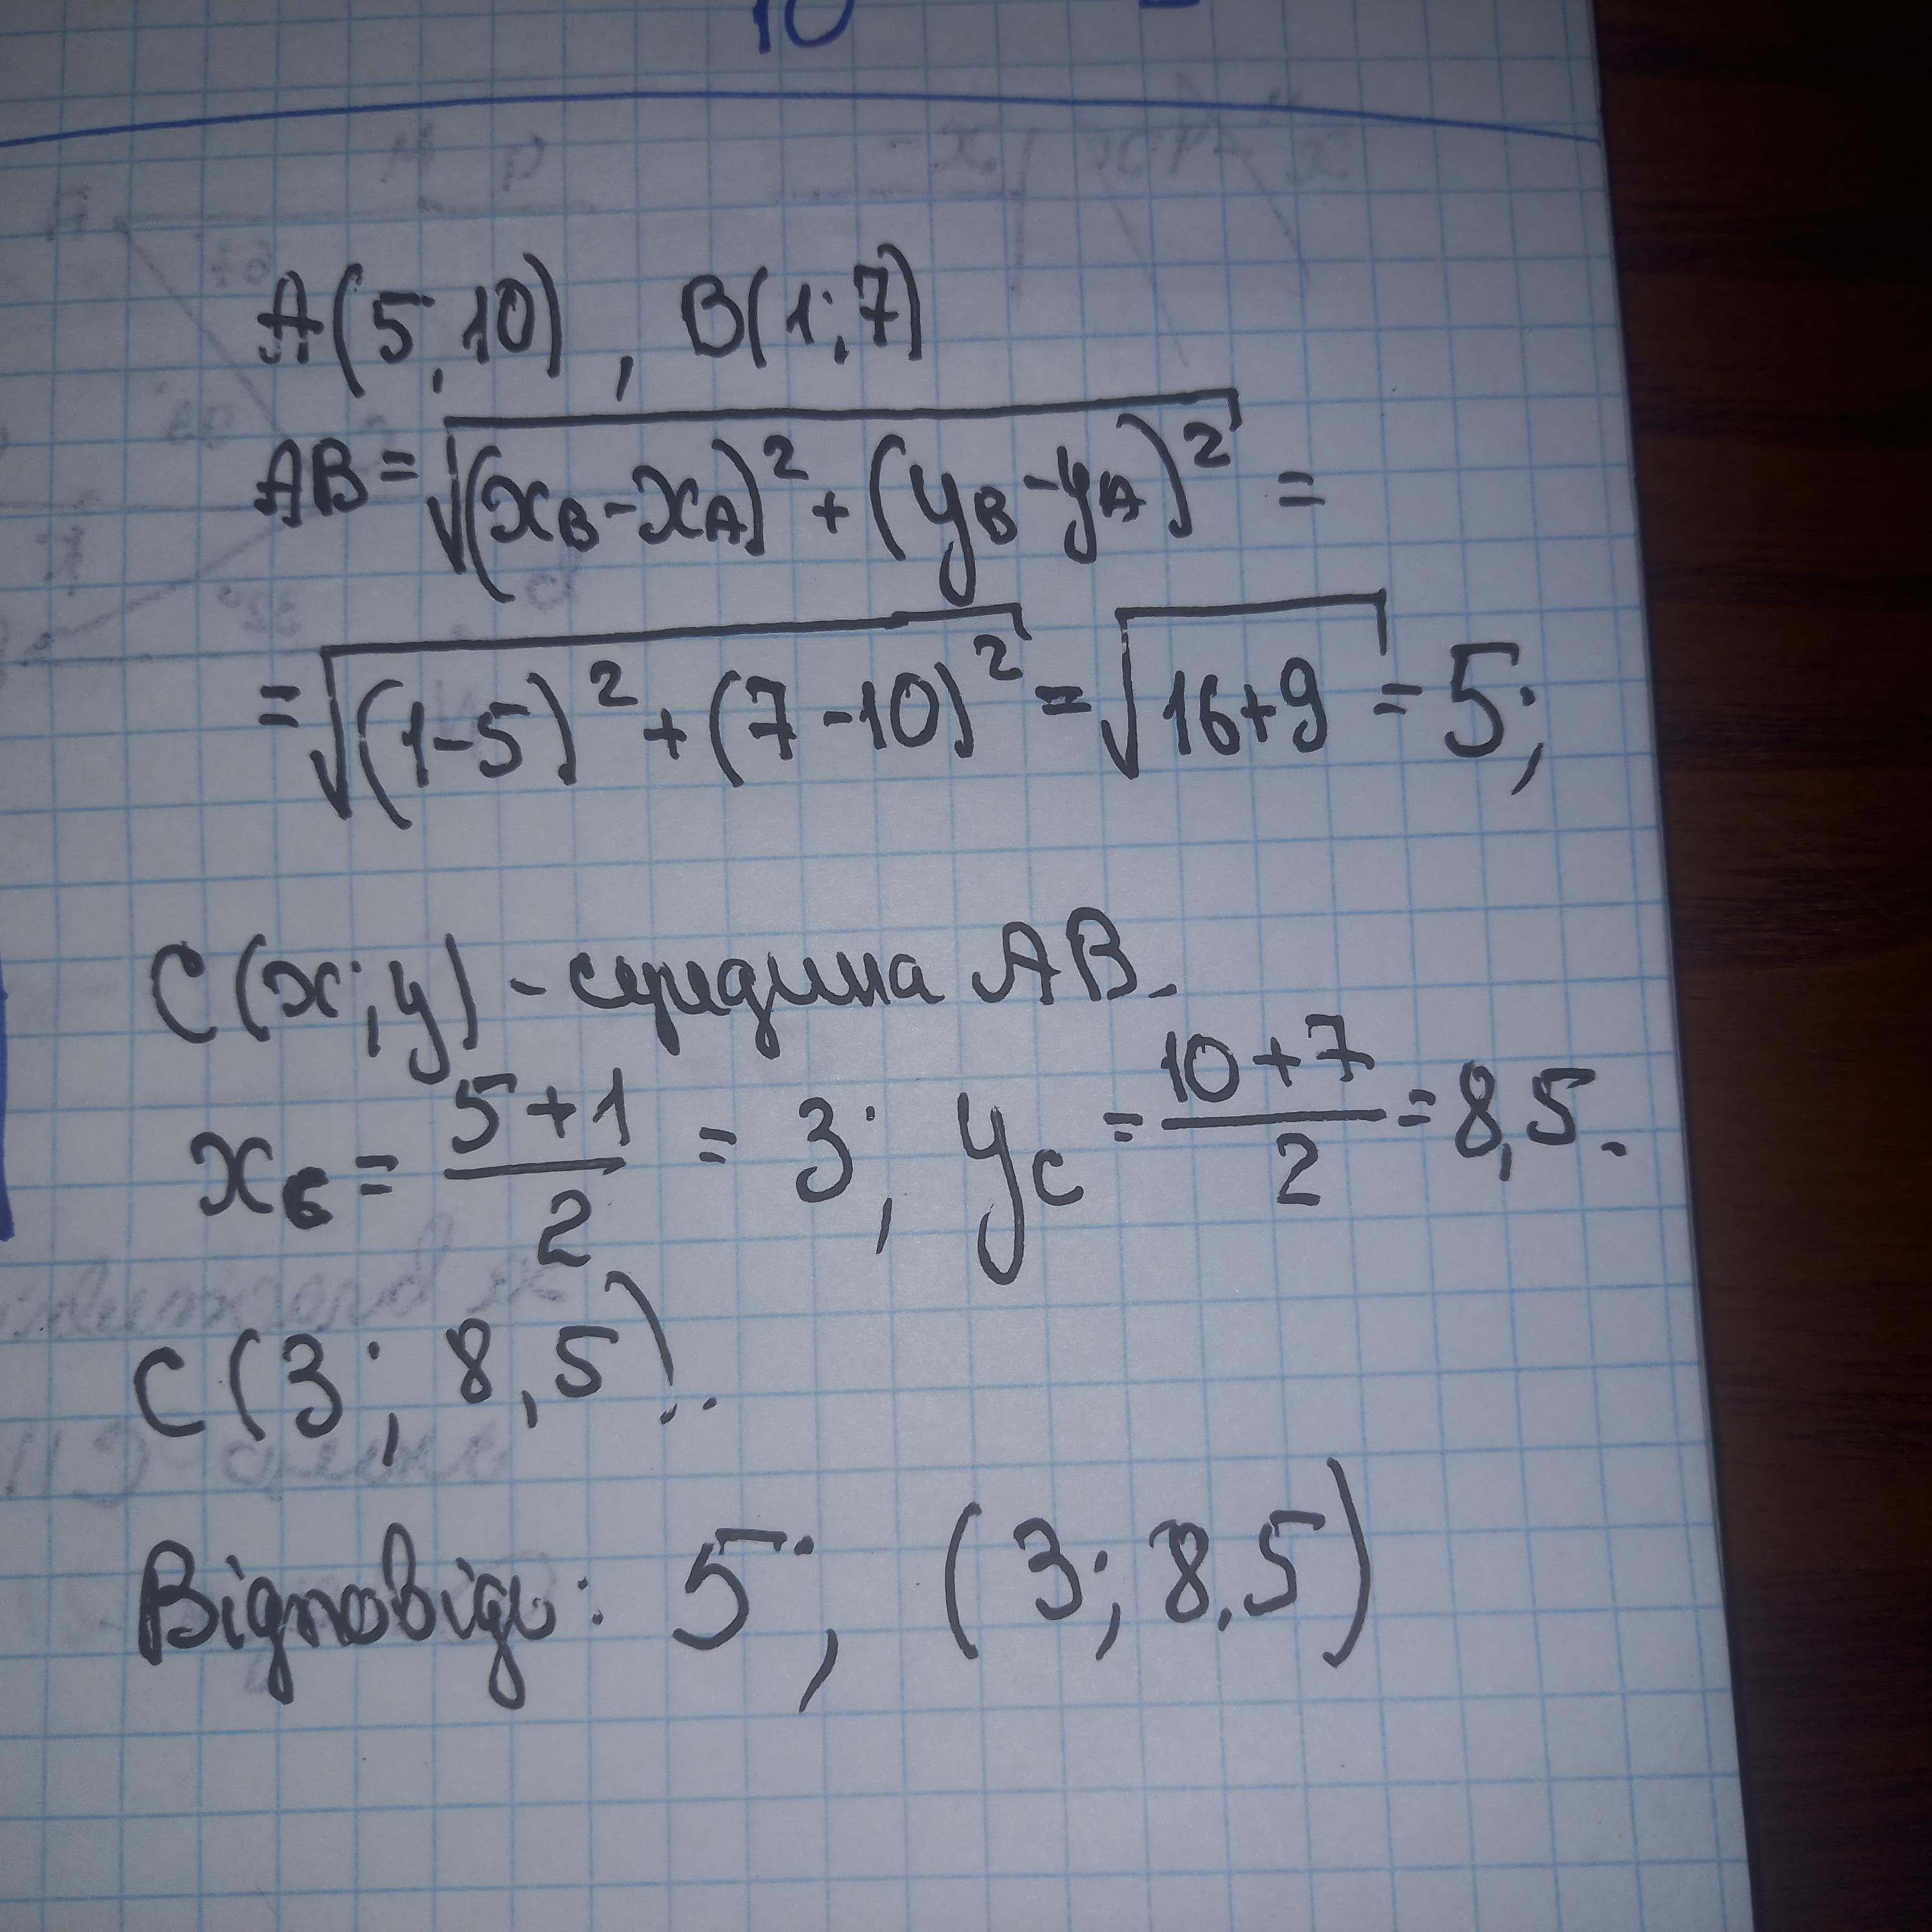 10
A(5;10), B(1;7)
AB=√((x_B-x_A)²+(y_B-y_A)²)=
=√((1-5)²+(7-10)²)=√(16+9)=5;
C(x;y)-середина AB.
x_C=(5+1)/2=3; y_C=(10+7)/2=8,5.
C(3; 8,5)..
Відповідь: 5; (3; 8,5)